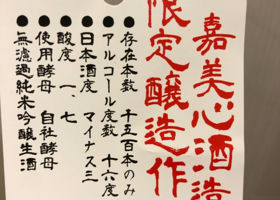 嘉美心酒造
限定醸造作
●存在本数 千五百本のみ
●アルコール度数 十六度
●日本酒度 マイナス三
●酸度 一、七
●使用酵母 自社酵母
●無濾過純米吟醸生酒